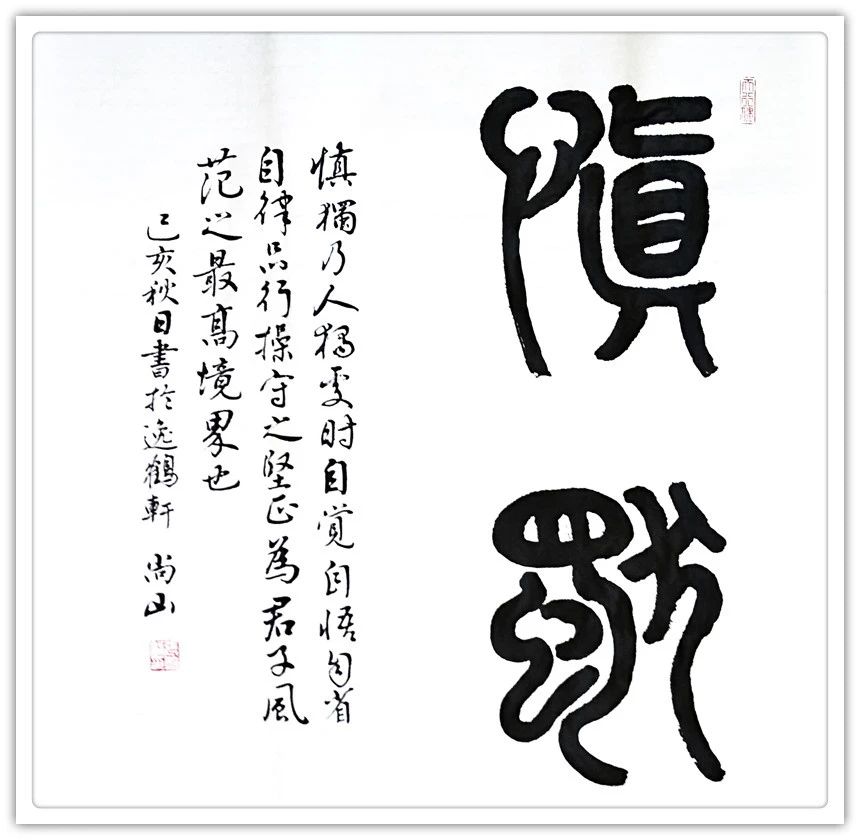 慎獨
慎獨乃人獨处时自觉自悟自省
自律品行操守之堅正為君子風
范之最高境界也
己亥秋日書於逸鶴軒 尚山